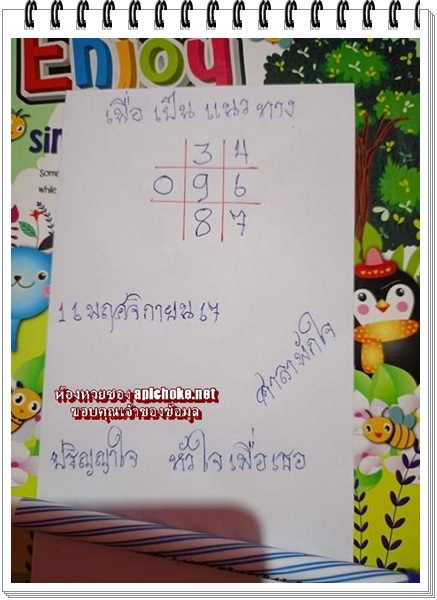 Enjoy
sin
Some
while
เพื่อ เป็น แนว ทาง
3 4
0 9 6
8 7
16 พฤศจิกายน 67
ศาลาพักใจ
ห้องหวยซอง apichoke.net
ขอบคุณเจ้าของข้อมูล
ปริญญาใจ หัวใจเพื่อเธอ